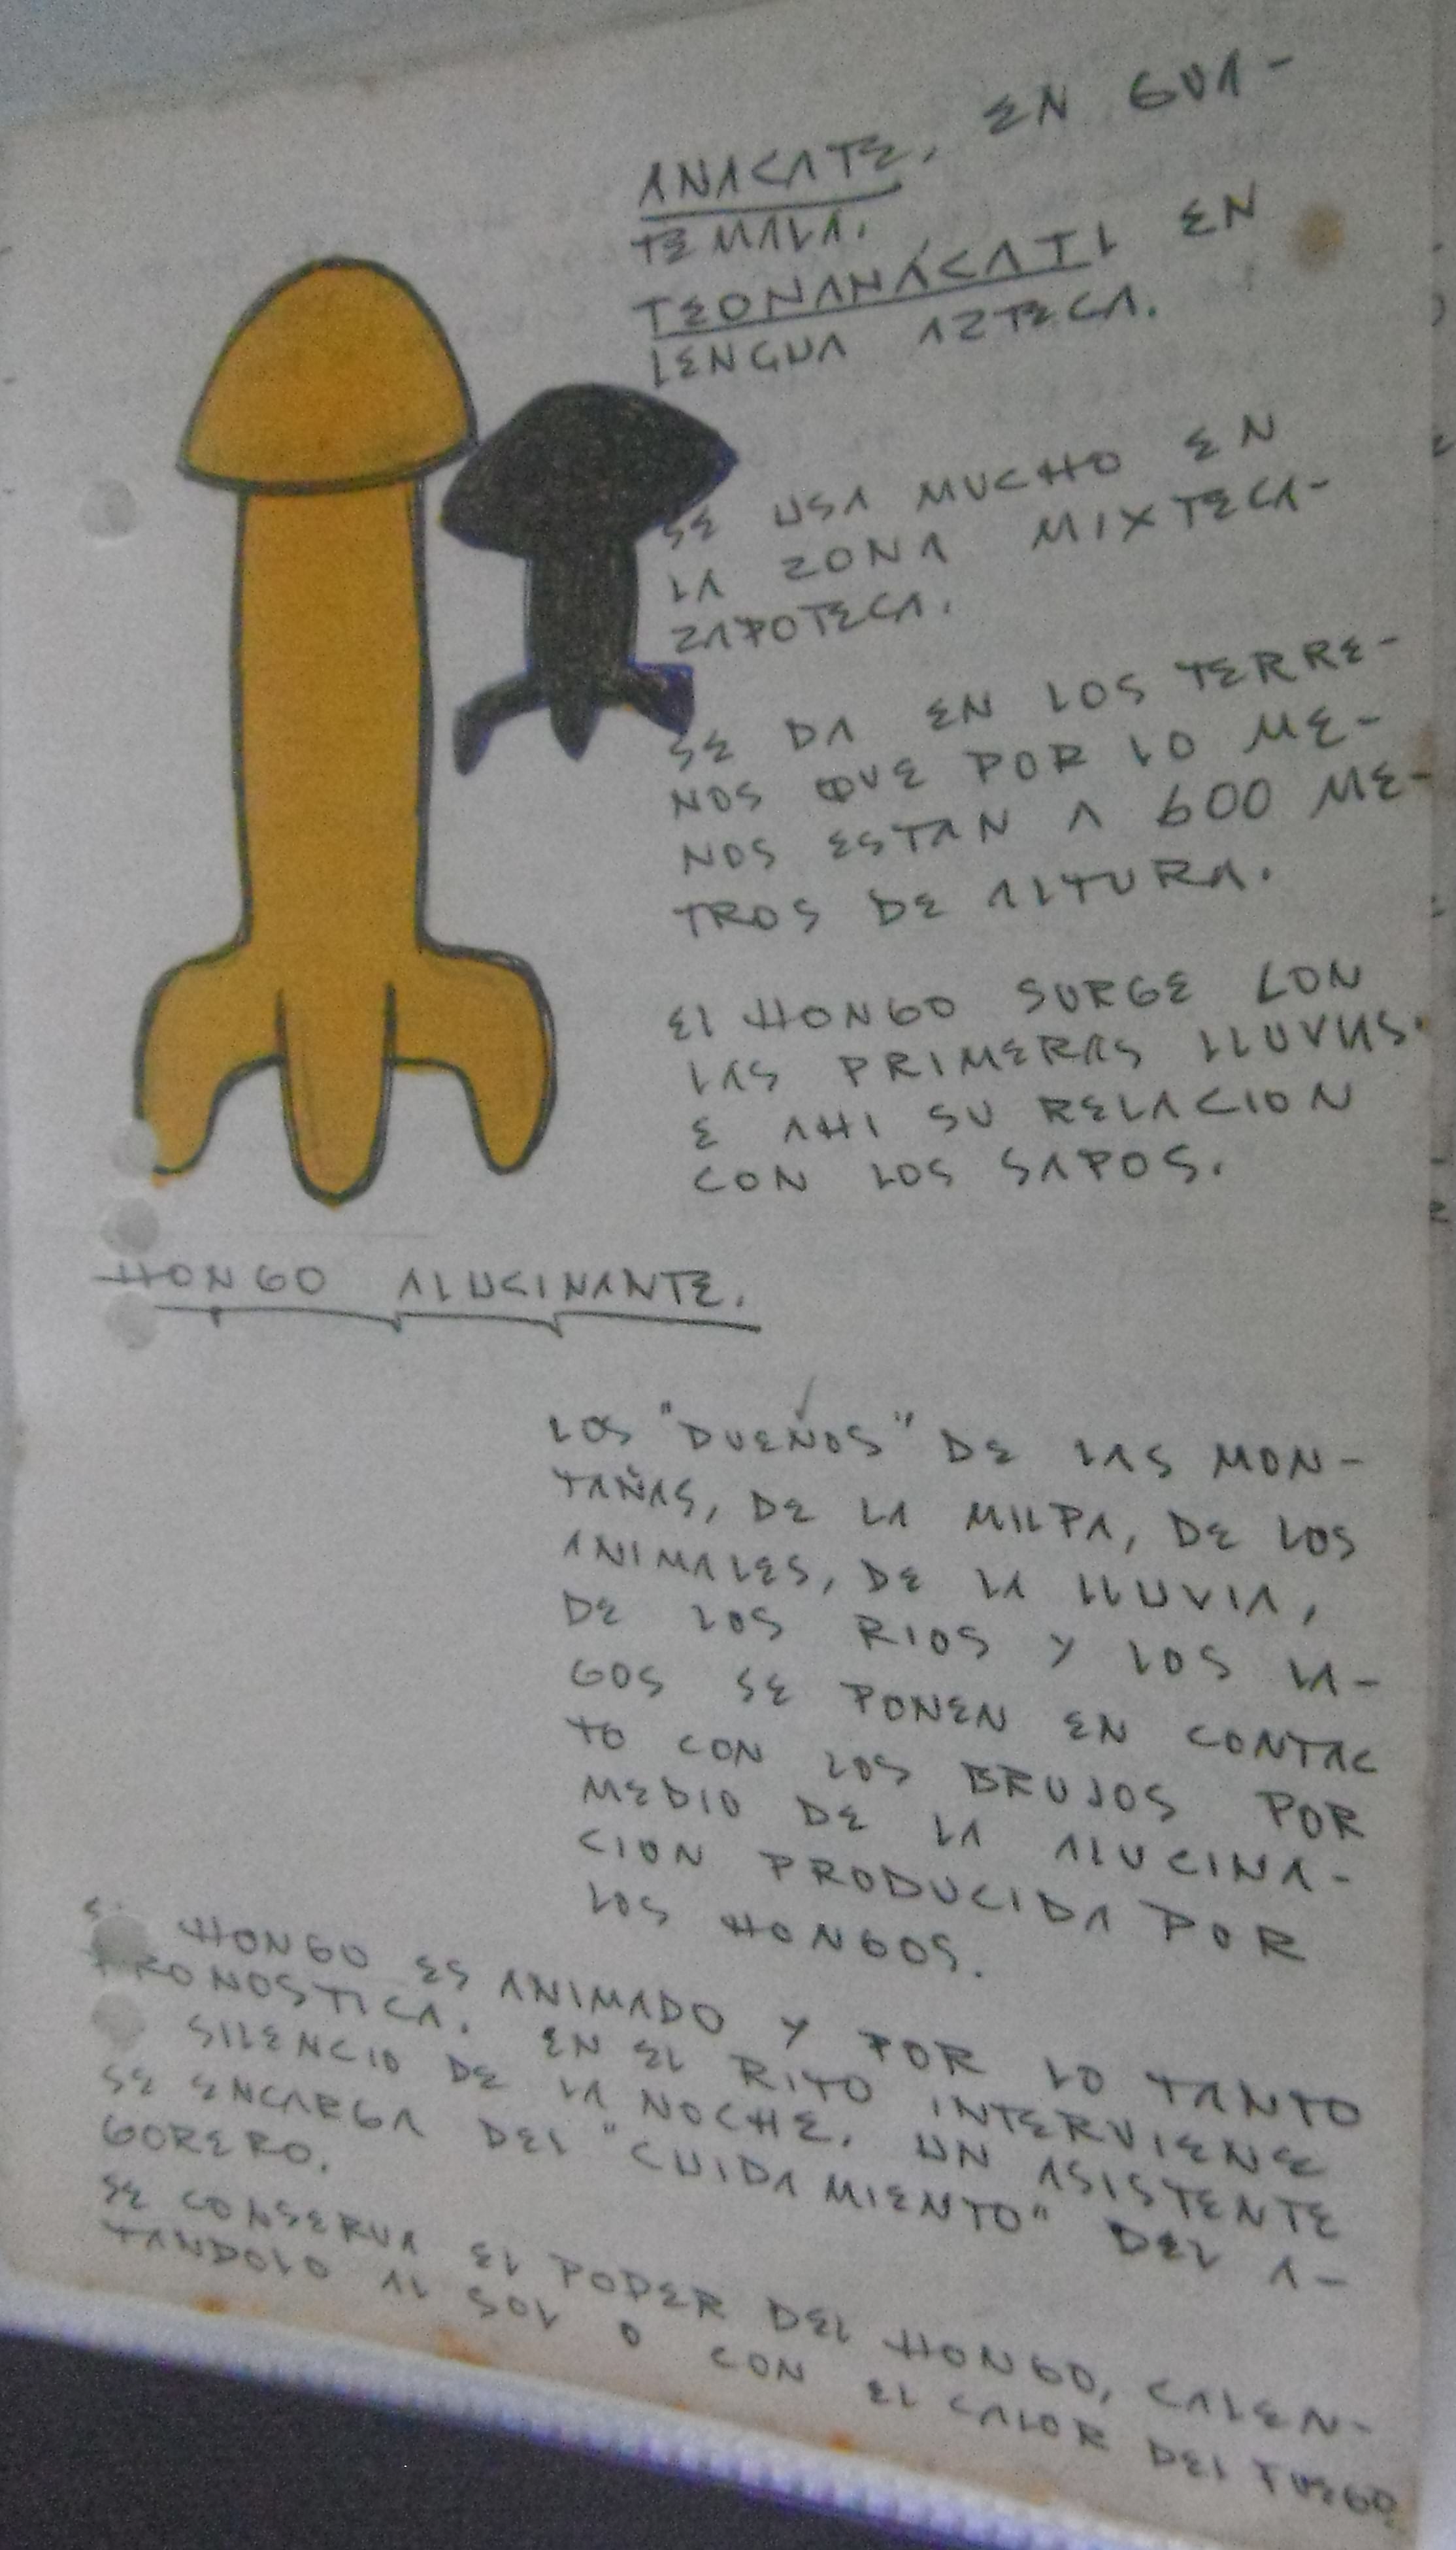 ANACATE, EN GUA-
TEMALA.
TEONANÁCATL EN
LENGUA AZTECA.
SE USA MUCHO EN
LA ZONA MIXTECA-
ZAPOTECA.
SE DA EN LOS TERRE-
NOS QUE POR LO ME-
NOS ESTAN A 600 ME-
TROS DE ALTURA.
EL HONGO SURGE CON
LAS PRIMERAS LLUVIAS.
E AHI SU RELACION
CON LOS SAPOS.
HONGO ALUCINANTE.
LOS "DUEÑOS" DE LAS MON-
TAÑAS, DE LA MILPA, DE LOS
ANIMALES, DE LA LLUVIA,
DE LOS RIOS Y LOS LA-
GOS SE PONEN EN CONTAC
TO CON LOS BRUJOS POR
MEDIO DE LA ALUCINA-
CION PRODUCIDA POR
LOS HONGOS.
HONGO ES ANIMADO Y POR LO TANTO
PRONOSTICA. EN EL RITO INTERVIENE
SILENCIO DE LA NOCHE. UN ASISTENTE
SE ENCARGA DEL "CUIDAMIENTO" DEL A-
GORERO.
SE CONSERVA EL PODER DEL HONGO, CALEN-
TANDOLO AL SOL O CON EL CALOR DEL FUEGO.